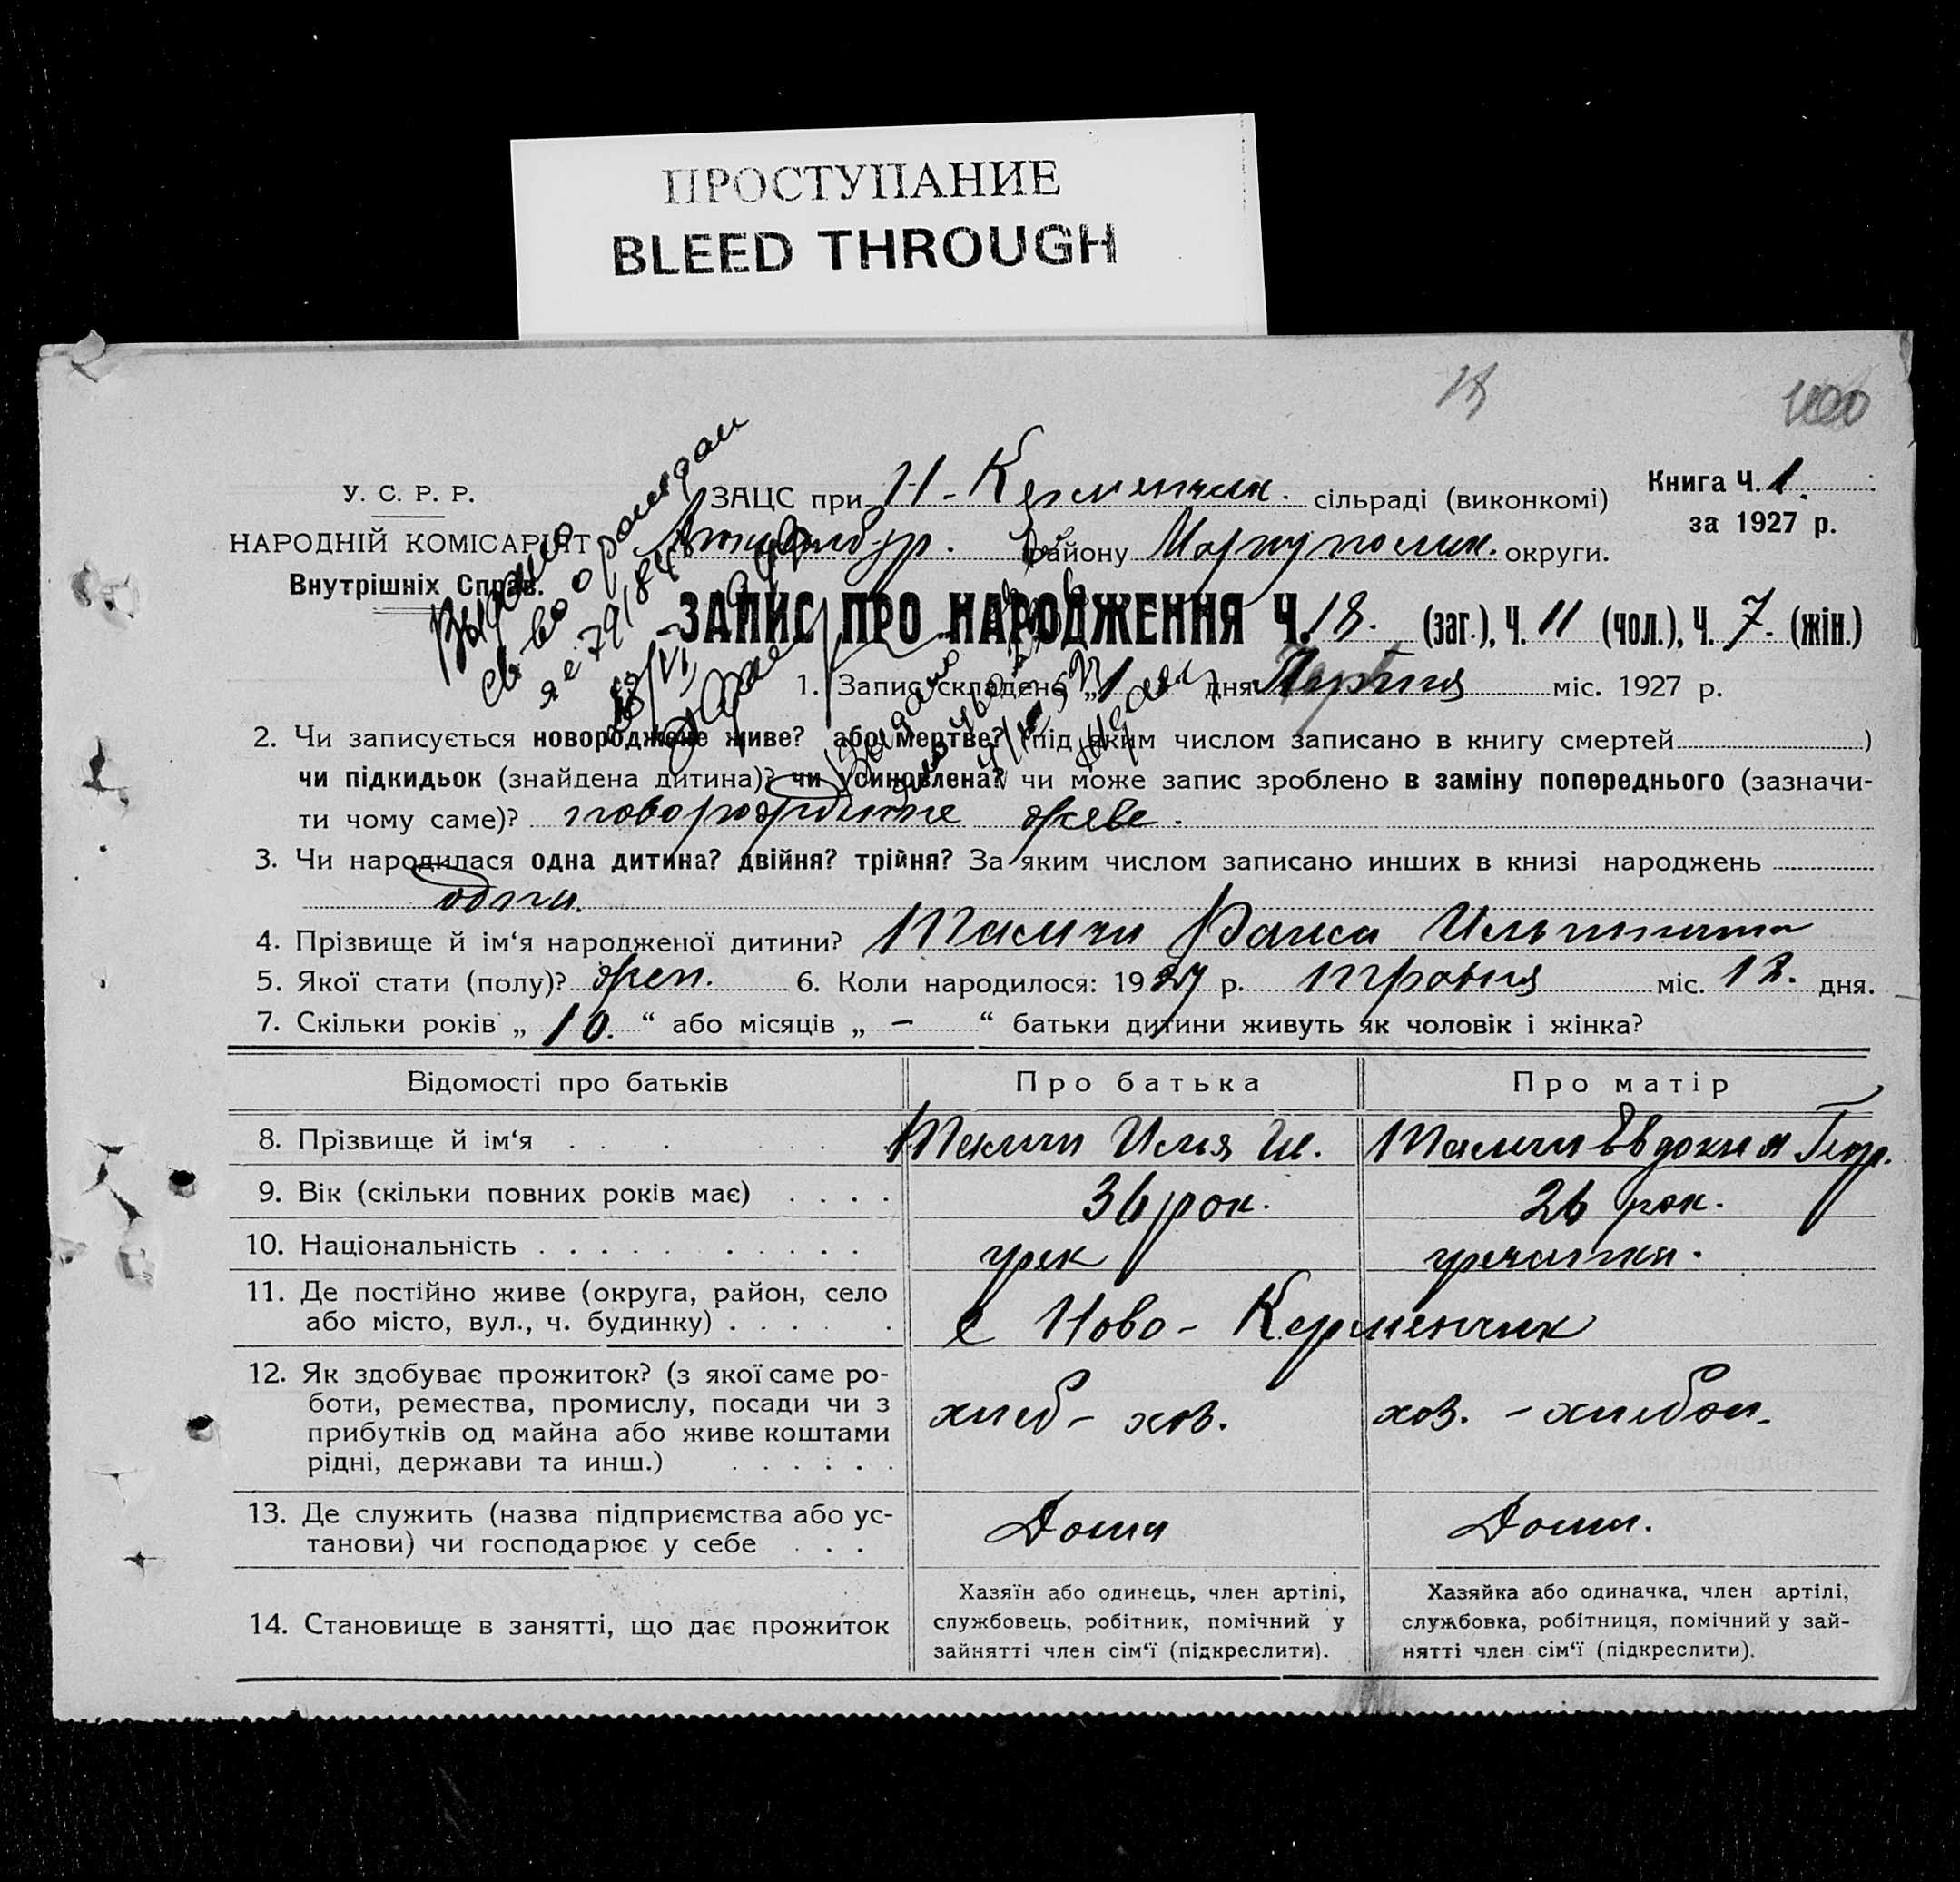 ПРОСТУПАНИЕ
BLEED THROUGH
18
У. С. Р. Р.
НАРОДНІЙ КОМІСАРІЯТ
Внутрішніх Справ.
ЗАЦС при Н-Керменчик. сільраді (виконкомі)
району Мариупольск. округи.
Книга Ч. 1.
за 1927 р.
Выдано
св-во о рожден
ЗАПИС ПРО НАРОДЖЕННЯ Ч. 18. (заг.), Ч. 11 (чол.), Ч. 7. (жін.)
1. Запис складено „1“ дня Червня міс. 1927 р.
2. Чи записується новороджене живе? або мертве? (під яким числом записано в книгу смертей )
чи підкидьок (знайдена дитина)? чи усиновлена? чи може запис зроблено в заміну попереднього (зазначи-
ти чому саме)? живе.
3. Чи народилася одна дитина? двійня? трійня? За яким числом записано инших в книзі народжень
одна.
4. Прізвище й ім‘я народженої дитини? Талчи Раиса Ильинична
5. Якої стати (полу)? жен. 6. Коли народилося: 1927 р. травня міс. 12. дня.
7. Скільки років „ 10. “ або місяців „ – “ батьки дитини живуть як чоловік і жінка?
Відомості про батьків Про батька Про матір
8. Прізвище й ім‘я Талчи Илья Ил. Талчи Евдокия Геор.
9. Вік (скільки повних років має) 36 рок. 26 рок.
10. Національність грек гречанка.
11. Де постійно живе (округа, район, село
або місто, вул., ч. будинку) с Ново-Керменчик
12. Як здобуває прожиток? (з якої саме ро-
боти, ремества, промислу, посади чи з
прибутків од майна або живе коштами
рідні, держави та инш.) хлеб-хоз. хоз.-хлебоп.
13. Де служить (назва підприємства або ус-
танови) чи господарює у себе Дома Дома.
14. Становище в занятті, що дає прожиток
Хазяїн або одинець, член артілі,
службовець, робітник, помічний у
зайнятті член сім‘ї (підкреслити).
Хазяйка або одиначка, член артілі,
службовка, робітниця, помічний у зай-
нятті член сім‘ї (підкреслити).